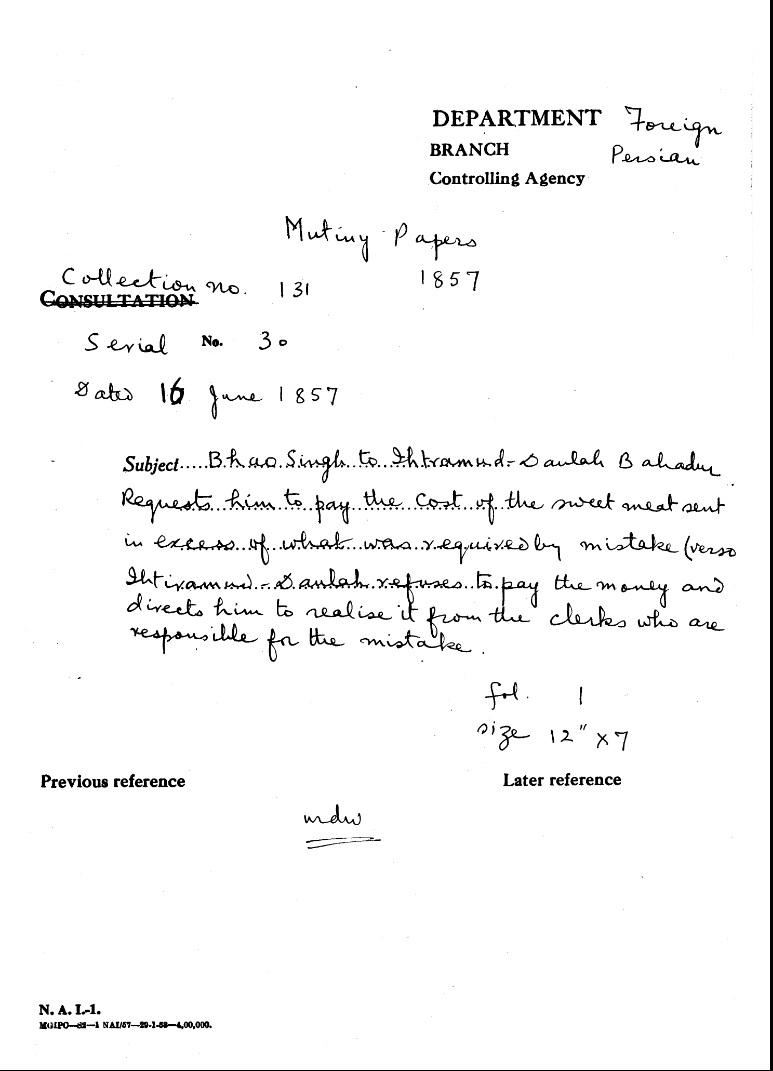 DEPARTMENT Foreign
BRANCH Persian
Controlling Agency
Mutiny Papers
1857
Collection no. 131
CONSULTATION
Serial No. 30
Dated 16 June 1857
Subject.....Bhao Singh to Ihtramud-Daulah Bahadur
Requests him to pay the cost of the sweet meat sent
in excess of what was required by mistake (verso
Ihtiramud-Daulah refuses to pay the money and
directs him to realise it from the clerks who are
responsible for the mistake.
fol. 1
size 12" x 7
Previous reference Later reference
N. A. I.-1.
MGIPC—62—1 NAI/57—29-1-58—4,00,000.